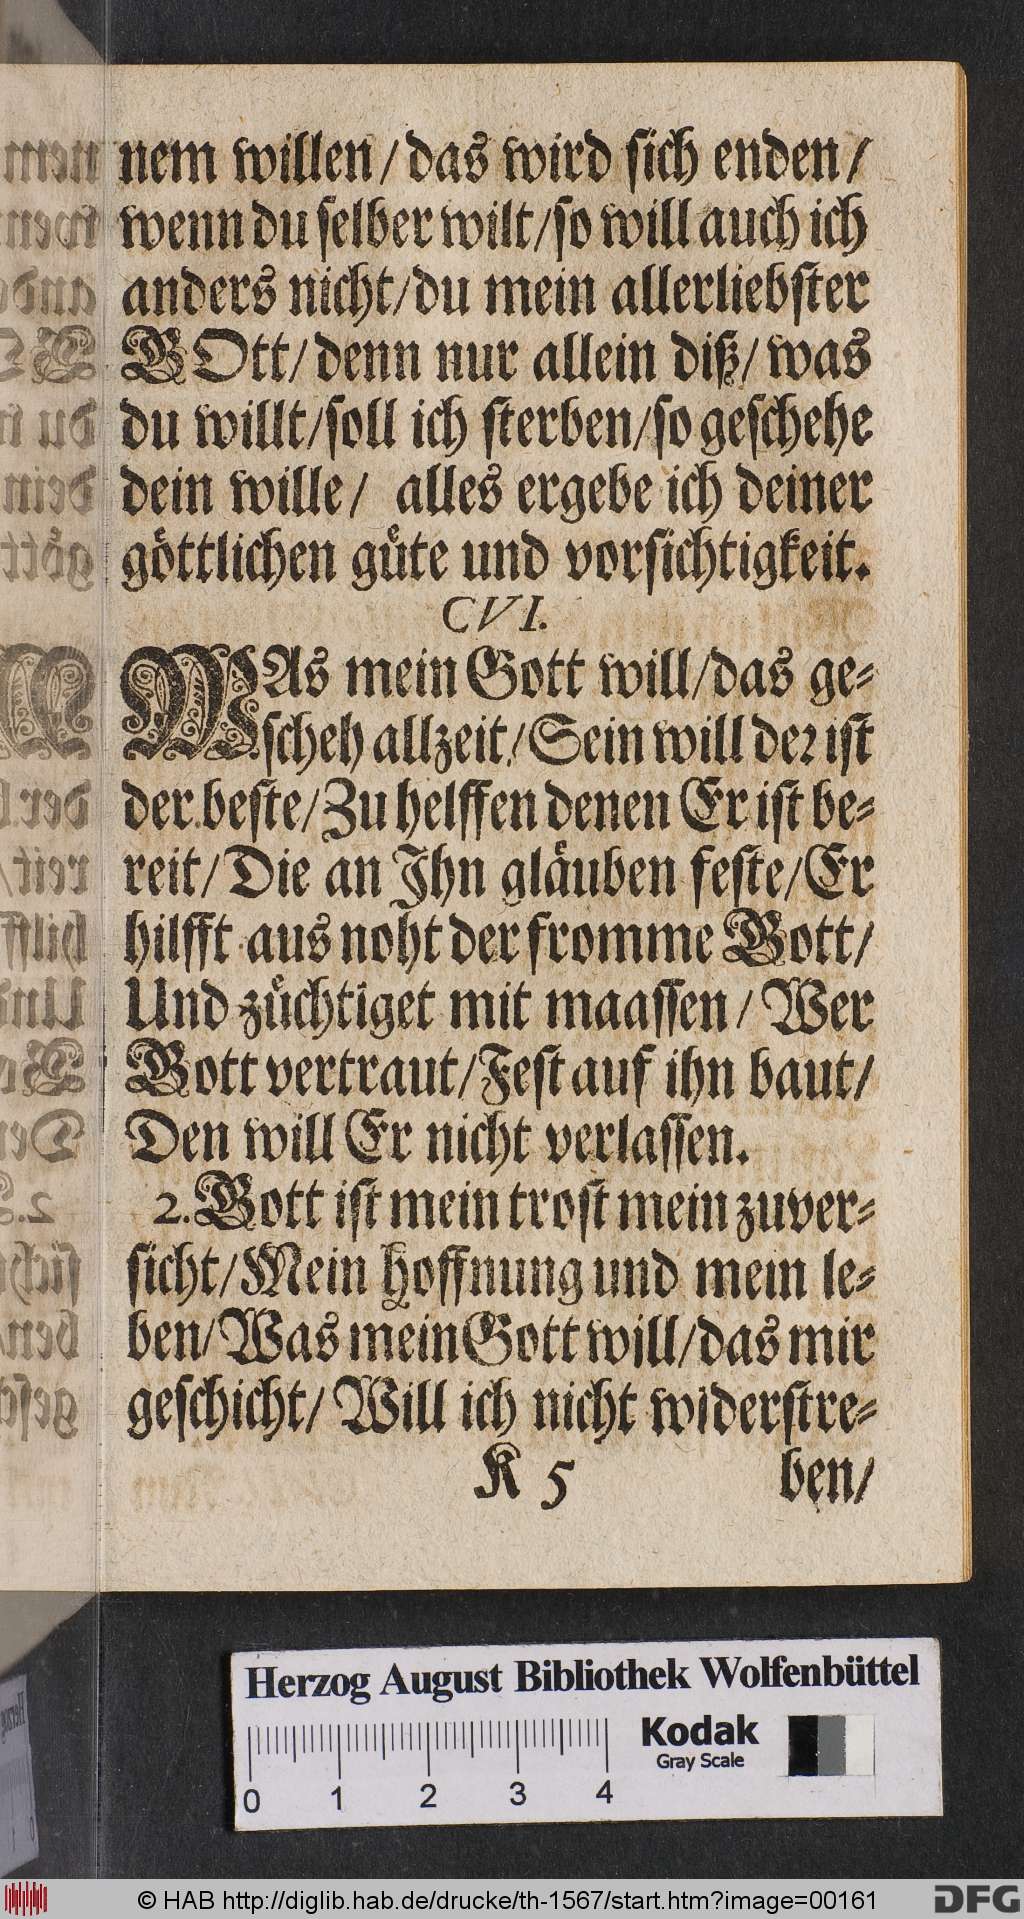 nem willen/ das wird sich enden/
wenn du selber wilt/ so will auch ich
anders nicht/ du mein allerliebster
GOtt/ denn nur allein diß/ was
du willt/ soll ich sterben/ so geschehe
dein wille/ alles ergebe ich deiner
göttlichen güte und vorsichtigkeit.
CVI.
WAs mein Gott will/ das ge-
scheh allzeit/ Sein will der ist
der beste/ Zu helffen denen Er ist be-
reit/ Die an Ihn gläuben feste/ Er
hilfft aus noht der fromme Gott/
Und züchtiget mit maassen/ Wer
Gott vertraut/ Fest auf ihn baut/
Den will Er nicht verlassen.
2. Gott ist mein trost mein zuver-
sicht/ Mein hoffnung und mein le-
ben/ Was mein Gott will/ das mir
geschicht/ Will ich nicht widerstre-
K 5 ben/
Herzog August Bibliothek Wolfenbüttel
Kodak
Gray Scale
0 1 2 3 4
© HAB http://diglib.hab.de/drucke/th-1567/start.htm?image=00161
DFG